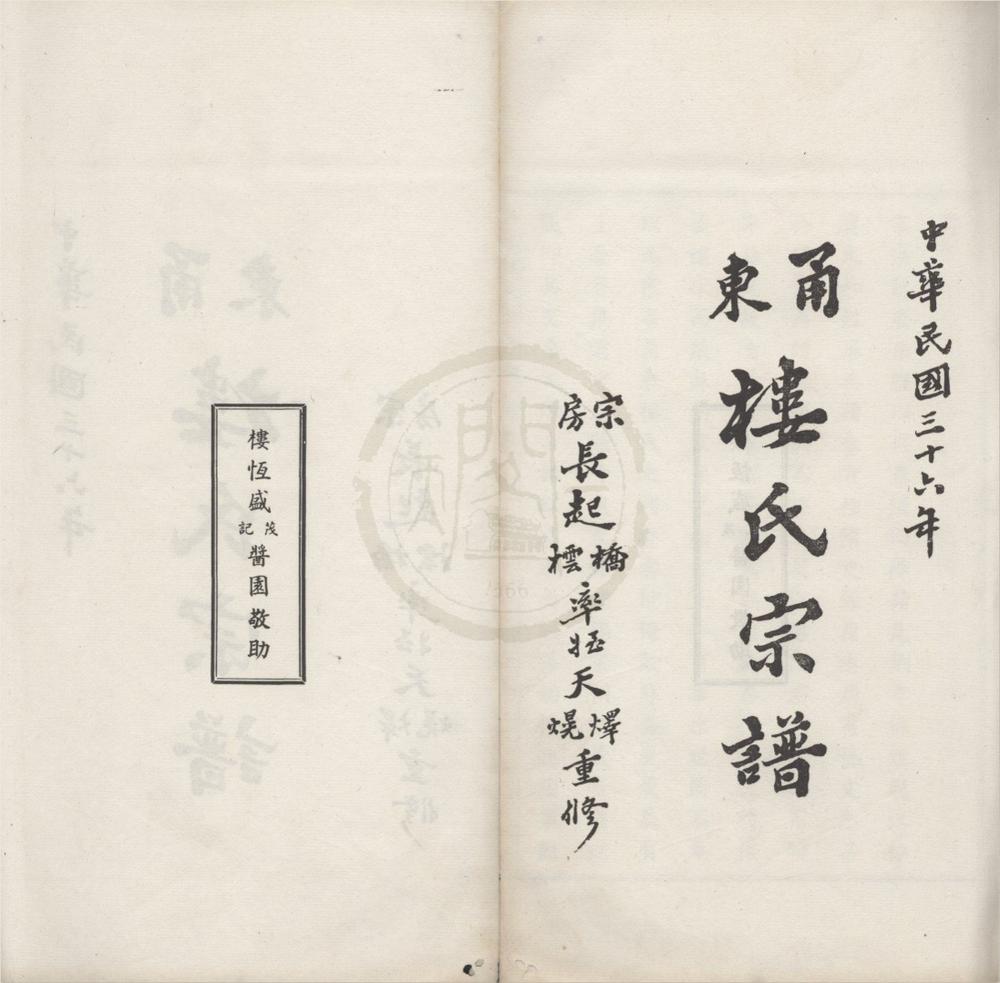 中華民國三十六年
甬東樓氏宗譜
宗房長起橋橒率姪天燡熀重修
樓恆盛茂記醬園敬助